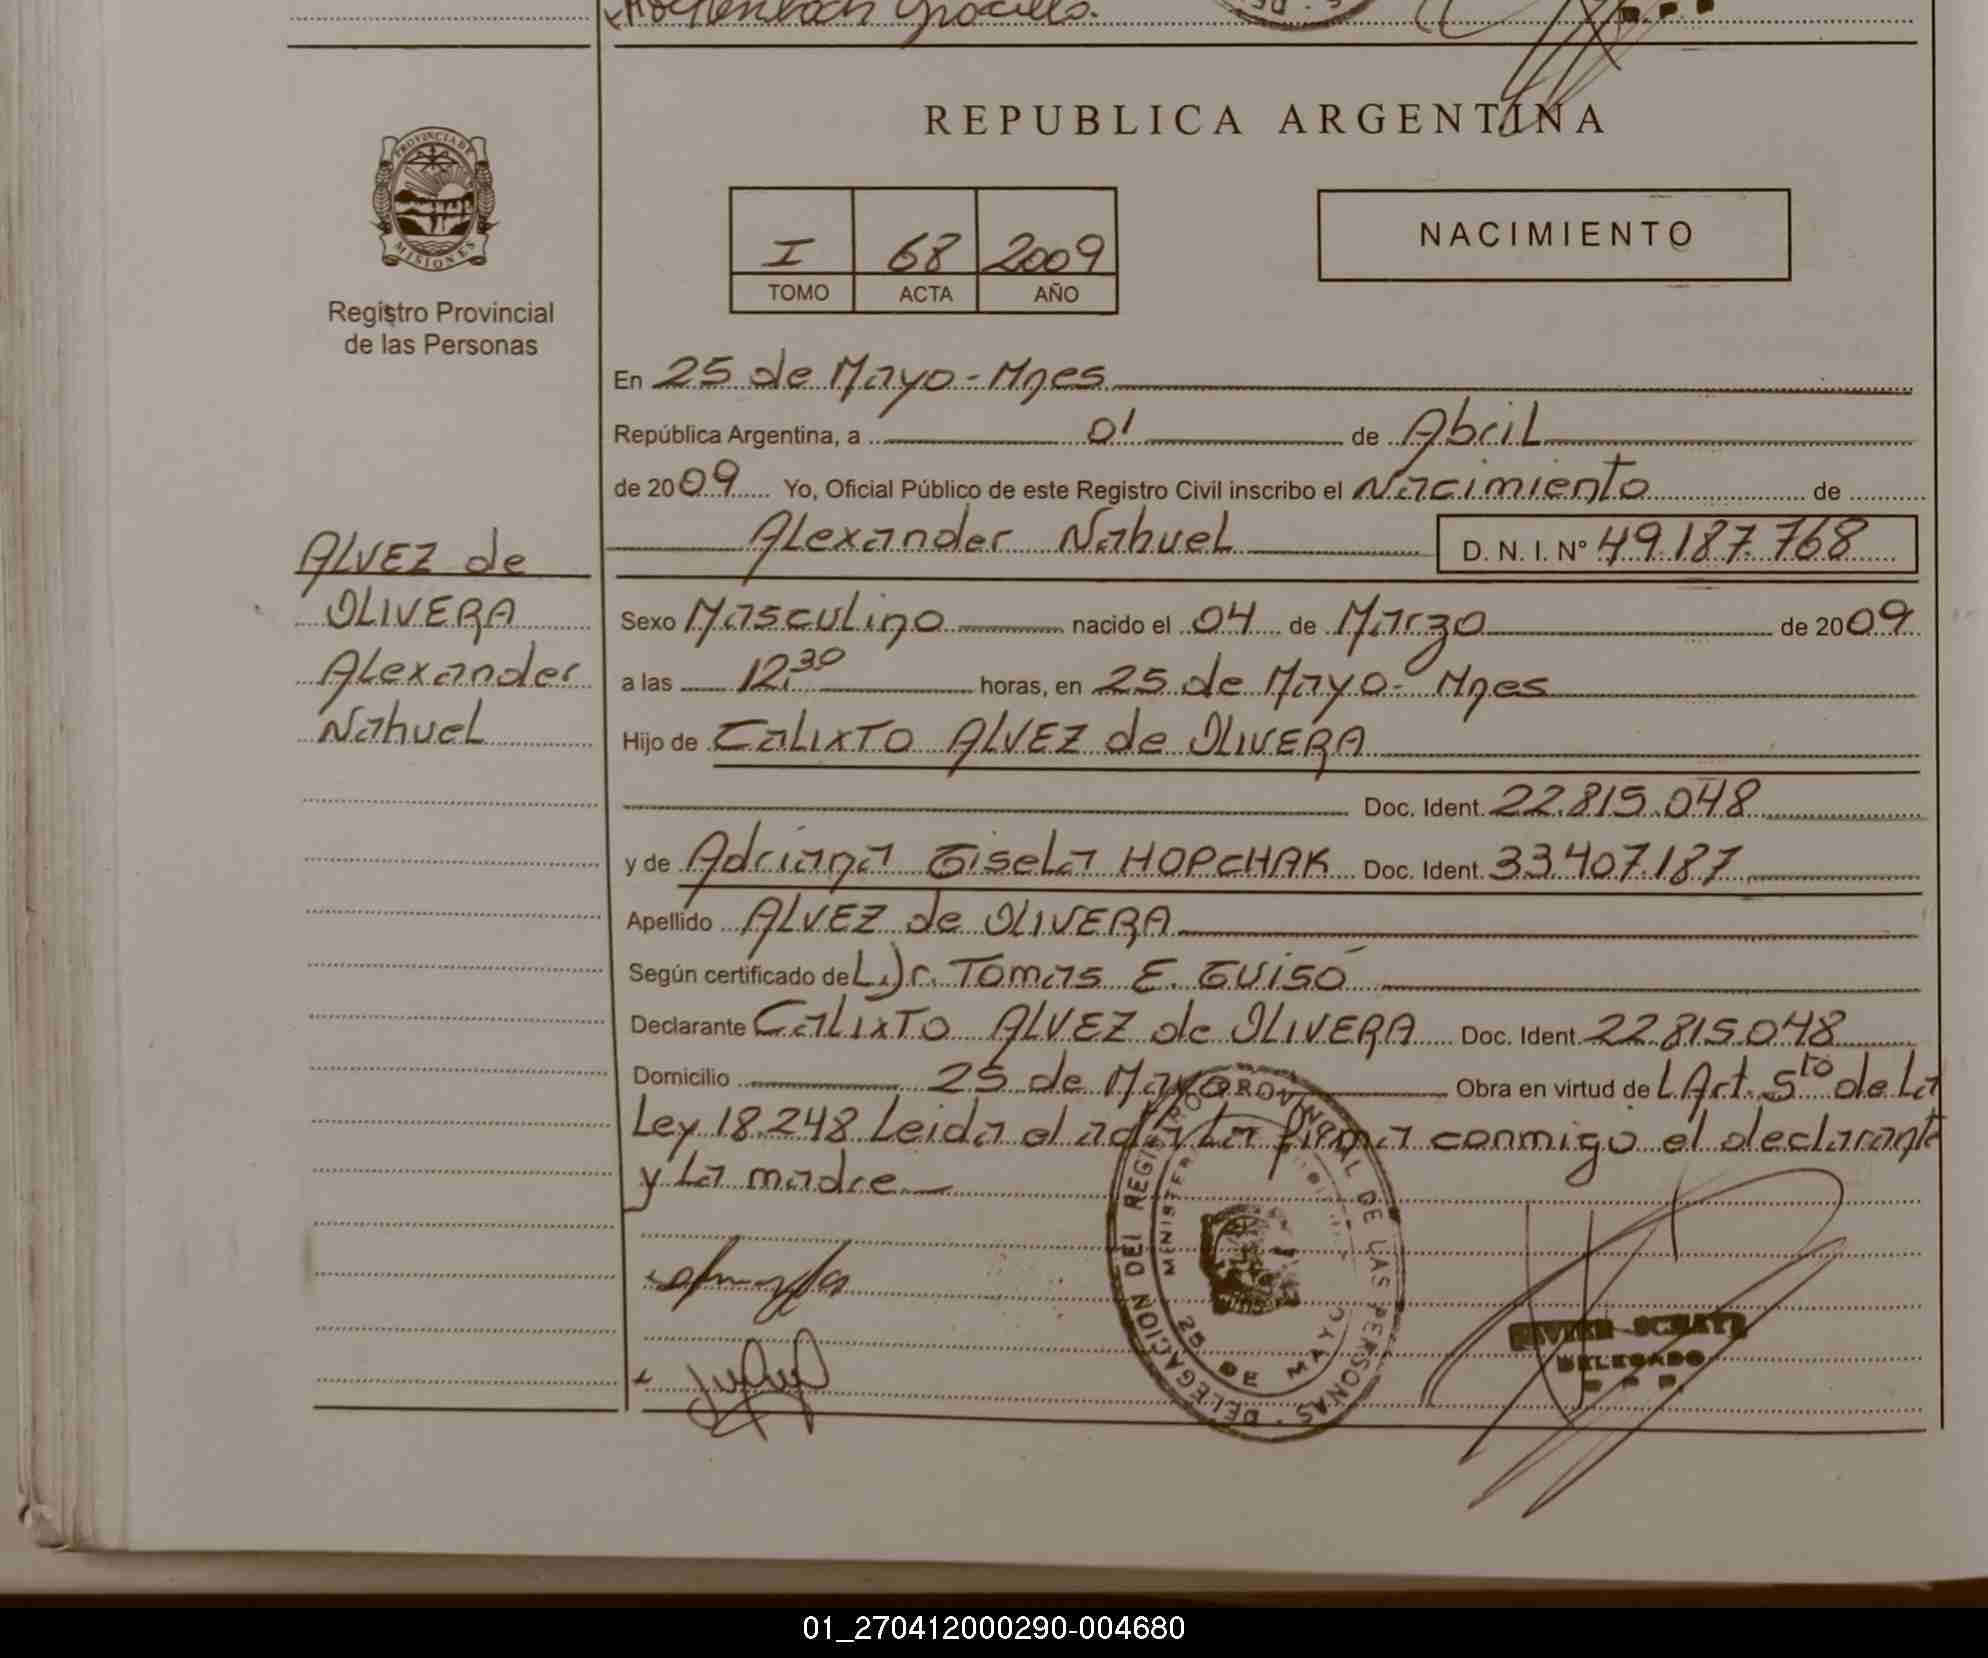 REPUBLICA ARGENTINA
PROVINCIA DE
MISIONES
Registro Provincial
de las Personas
I 68 2009
TOMO ACTA AÑO
NACIMIENTO
En 25 de Mayo - Mnes
República Argentina, a 01 de Abril
de 2009 Yo, Oficial Público de este Registro Civil inscribo el Nacimiento de
Alexander Nahuel D. N. I. Nº 49.187.768
ALVEZ de
OLIVERA
Alexander
Nahuel
Sexo Masculino nacido el 04 de Marzo de 2009
a las 12:30 horas, en 25 de Mayo - Mnes
Hijo de Calixto ALVEZ de OLIVERA
Doc. Ident. 22.815.048
y de Adriana Gisela HOPCHAK Doc. Ident. 33.407.187
Apellido ALVEZ de OLIVERA
Según certificado de L. Dr. Tomas E. Guisó
Declarante Calixto ALVEZ de OLIVERA Doc. Ident. 22.815.048
Domicilio 25 de Mayo Obra en virtud de L Art. 5to de La
Ley 18.248 Leida el acta La firma conmigo el declarante
y La madre
DELEGACION DEL REGISTRO PROVINCIAL DE LAS PERSONAS
25 DE MAYO
DELEGADO
01_270412000290-004680